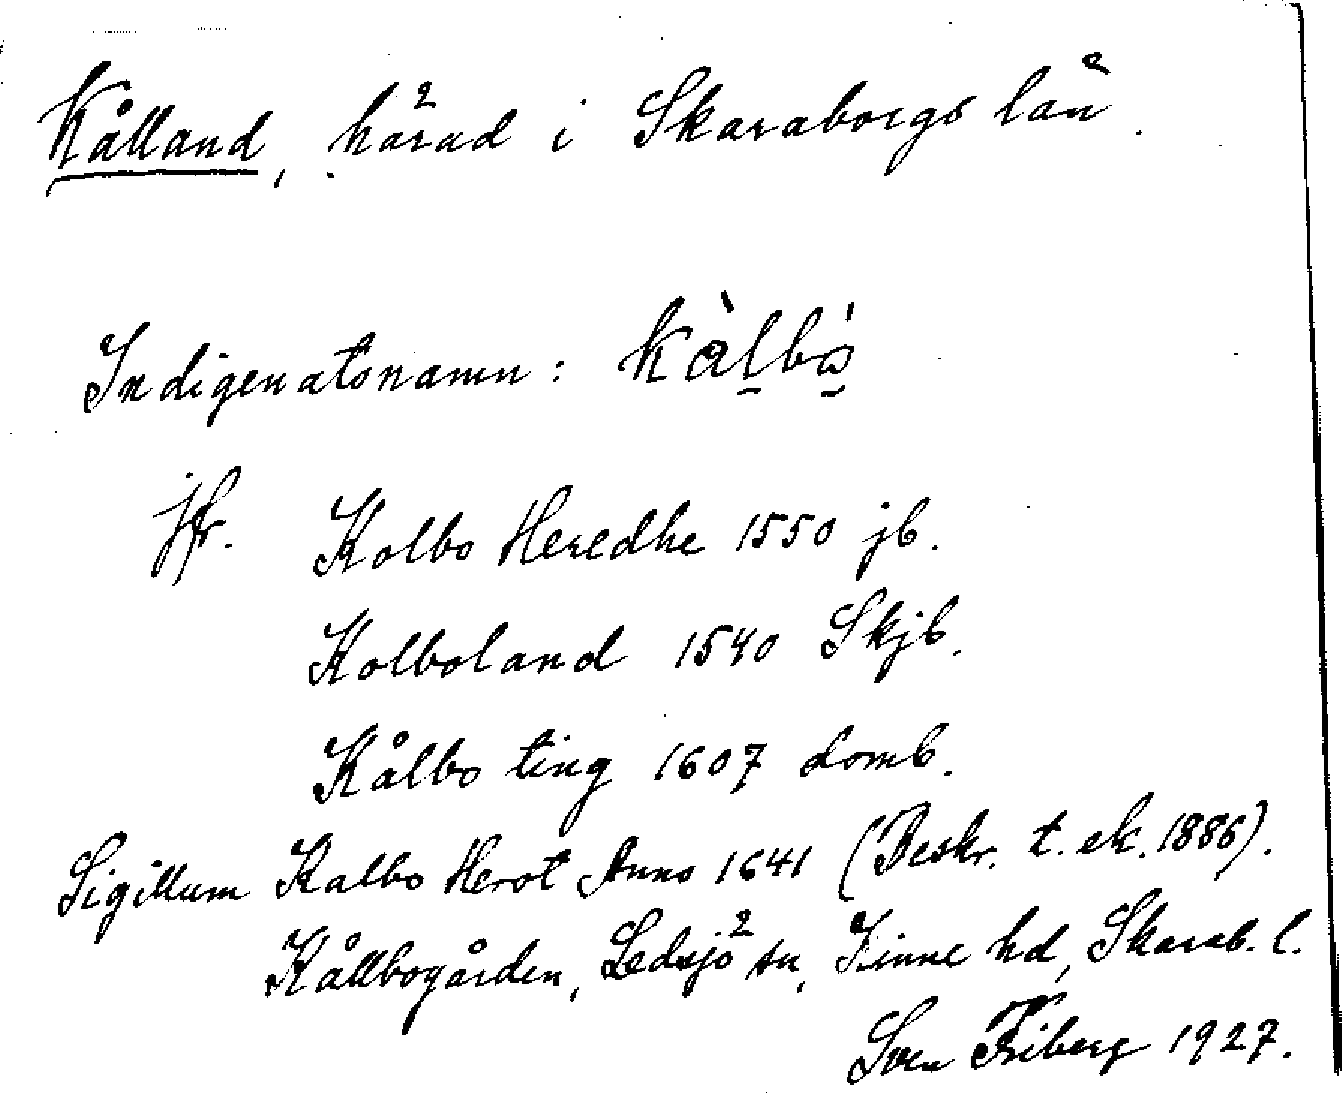 Kålland, härad i Skaraborgs län.
Indigenatsnamn: kålbo
jfr. Kolbo Heredhe 1550 jb.
Kolboland 1540 Skjb.
Kålbo ting 1607 domb.
Sigillum Kalbo Herot Anno 1641 (Beskr. t. ek. 1886).
Kållbogården, Ledsjö sn, Kinne hd, Skarab. l.
Sven Friberg 1927.